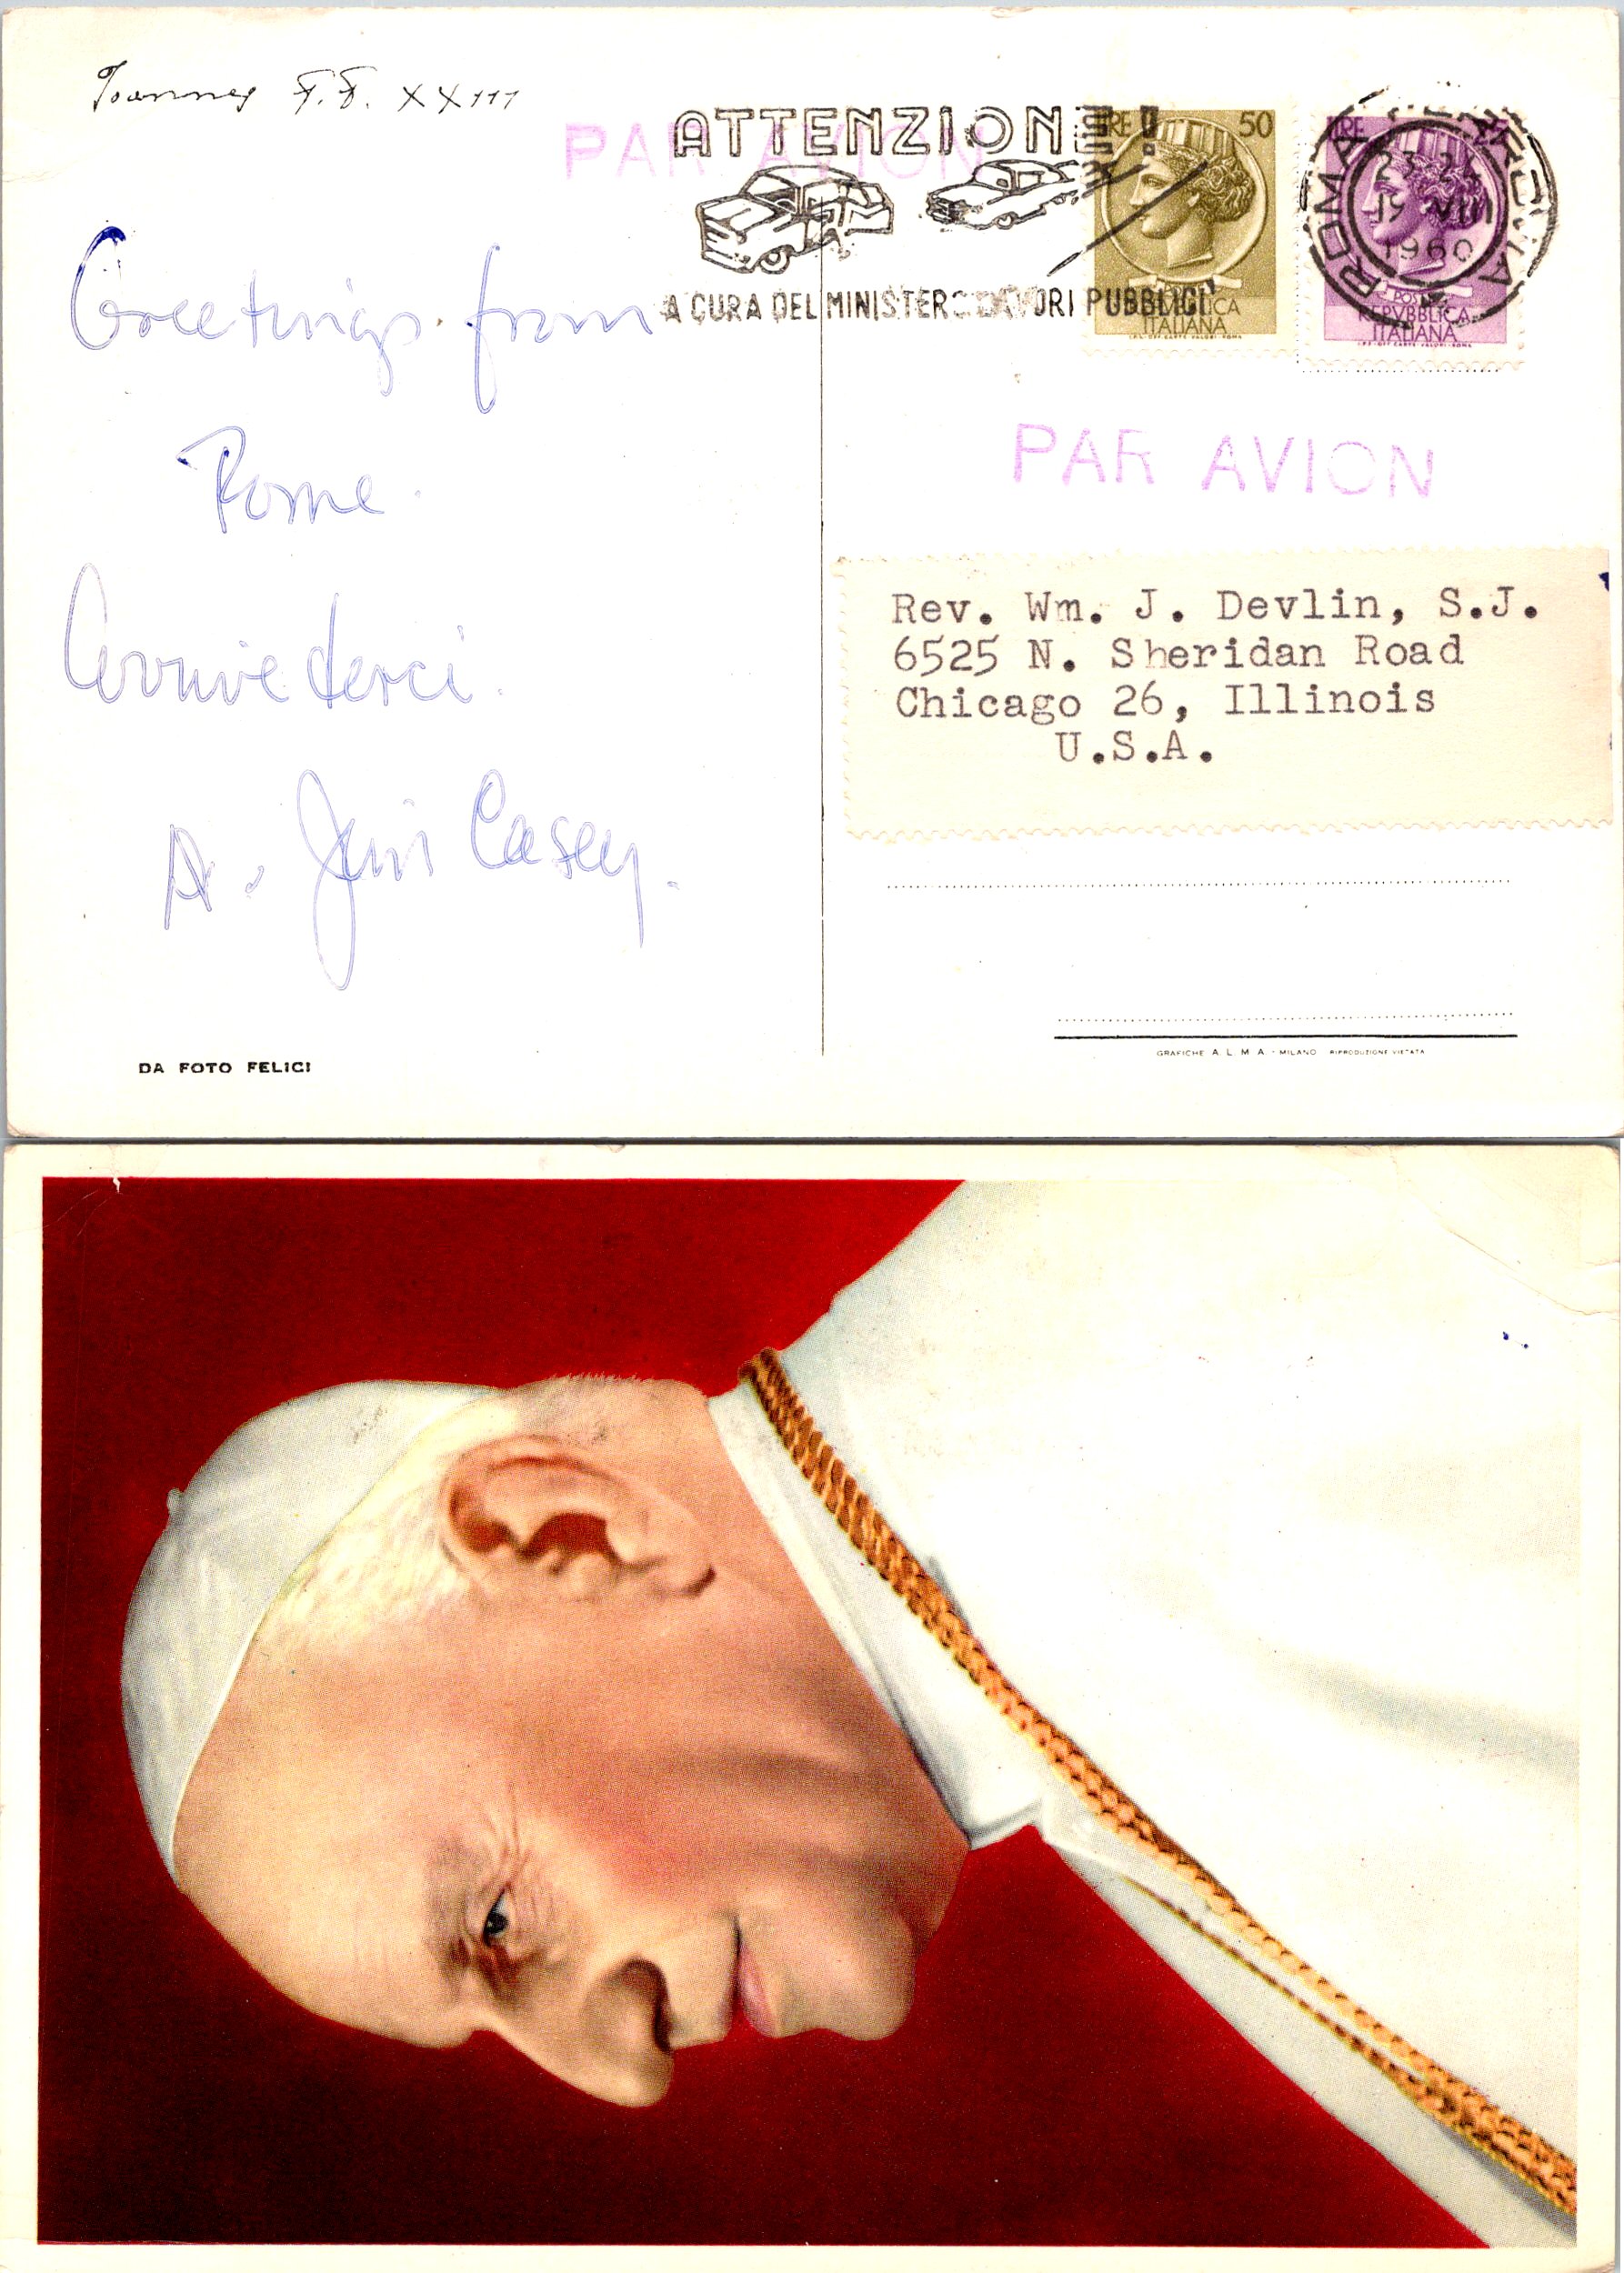 Ioannes P.P. XXIII
PAR AVION
ATTENZIONE!
A CURA DEL MINISTERO LAVORI PUBBLICI
LIRE 50
POSTE
REPVBBLICA
ITALIANA
I.P.S.-OFF. CARTE-VALORI-ROMA
LIRE
POSTE
REPVBBLICA
ITALIANA
I.P.S.-OFF. CARTE-VALORI-ROMA
ROMA FERROVIA
19 VIII
1960
PAR AVION
Greetings from
Rome.
Arrivederci.
Jim Casey.
Rev. Wm. J. Devlin, S.J.
6525 N. Sheridan Road
Chicago 26, Illinois
U.S.A.
DA FOTO FELICI
GRAFICHE A. L. M A. - MILANO RIPRODUZIONE VIETATA